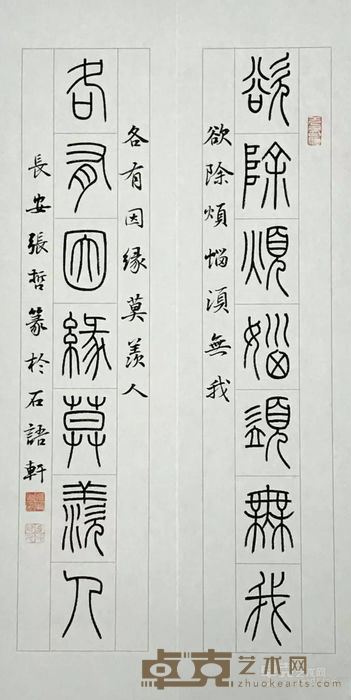 欲除煩惱須無我
欲除煩惱須無我
各有因緣莫羨人
各有因緣莫羨人
長安張哲篆於石語軒
卓克艺术网
zhuokearts.com